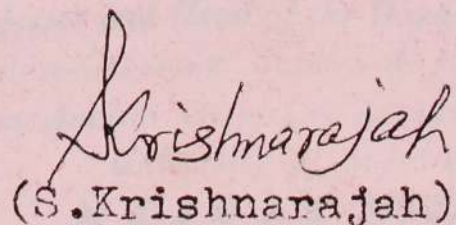 SKrishnarajah
(S.Krishnarajah)